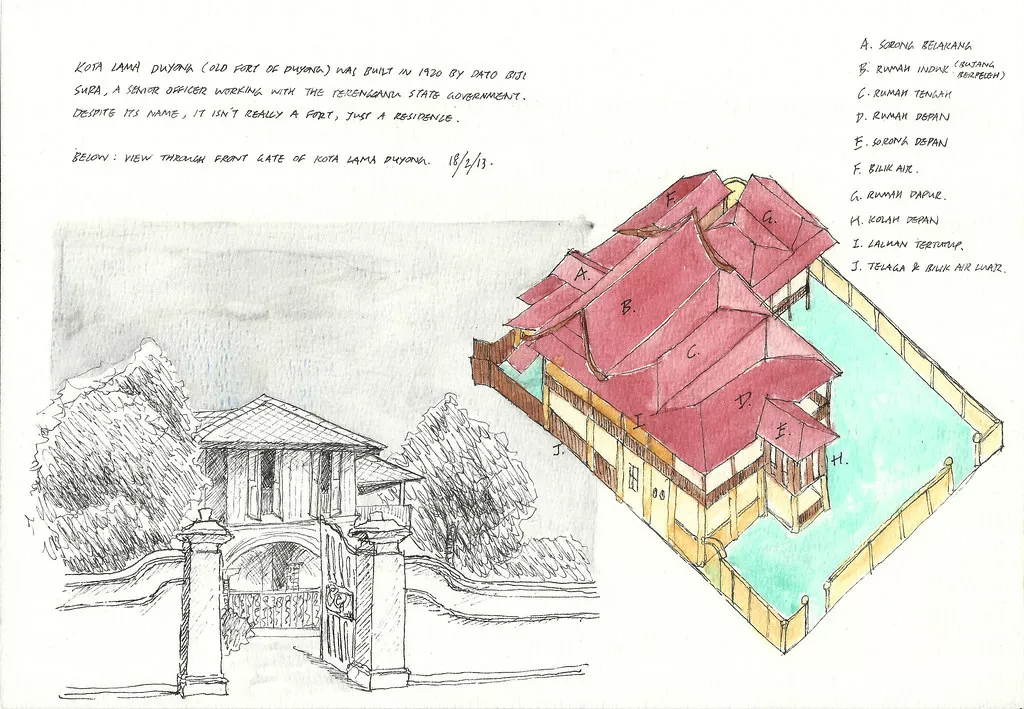 KOTA LAMA DUYONG (OLD FORT OF DUYONG) WAS BUILT IN 1920 BY DATO BIJI
SURA, A SENIOR OFFICER WORKING WITH THE TERENGGANU STATE GOVERNMENT.
DESPITE ITS NAME, IT ISN'T REALLY A FORT, JUST A RESIDENCE.
BELOW: VIEW THROUGH FRONT GATE OF KOTA LAMA DUYONG. 18/2/13.
A. SORONG BELAKANG
B. RUMAH INDUK (BUJANG
BERPELEH)
C. RUMAH TENGAH
D. RUMAH DEPAN
E. SORONG DEPAN
F. BILIK AIR.
G. RUMAH DAPUR.
H. KOLAH DEPAN
I. LALUAN TERTUTUP.
J. TELAGA & BILIK AIR LUAR.
F.
G.
A.
B.
C.
D.
E.
I
J.
H.